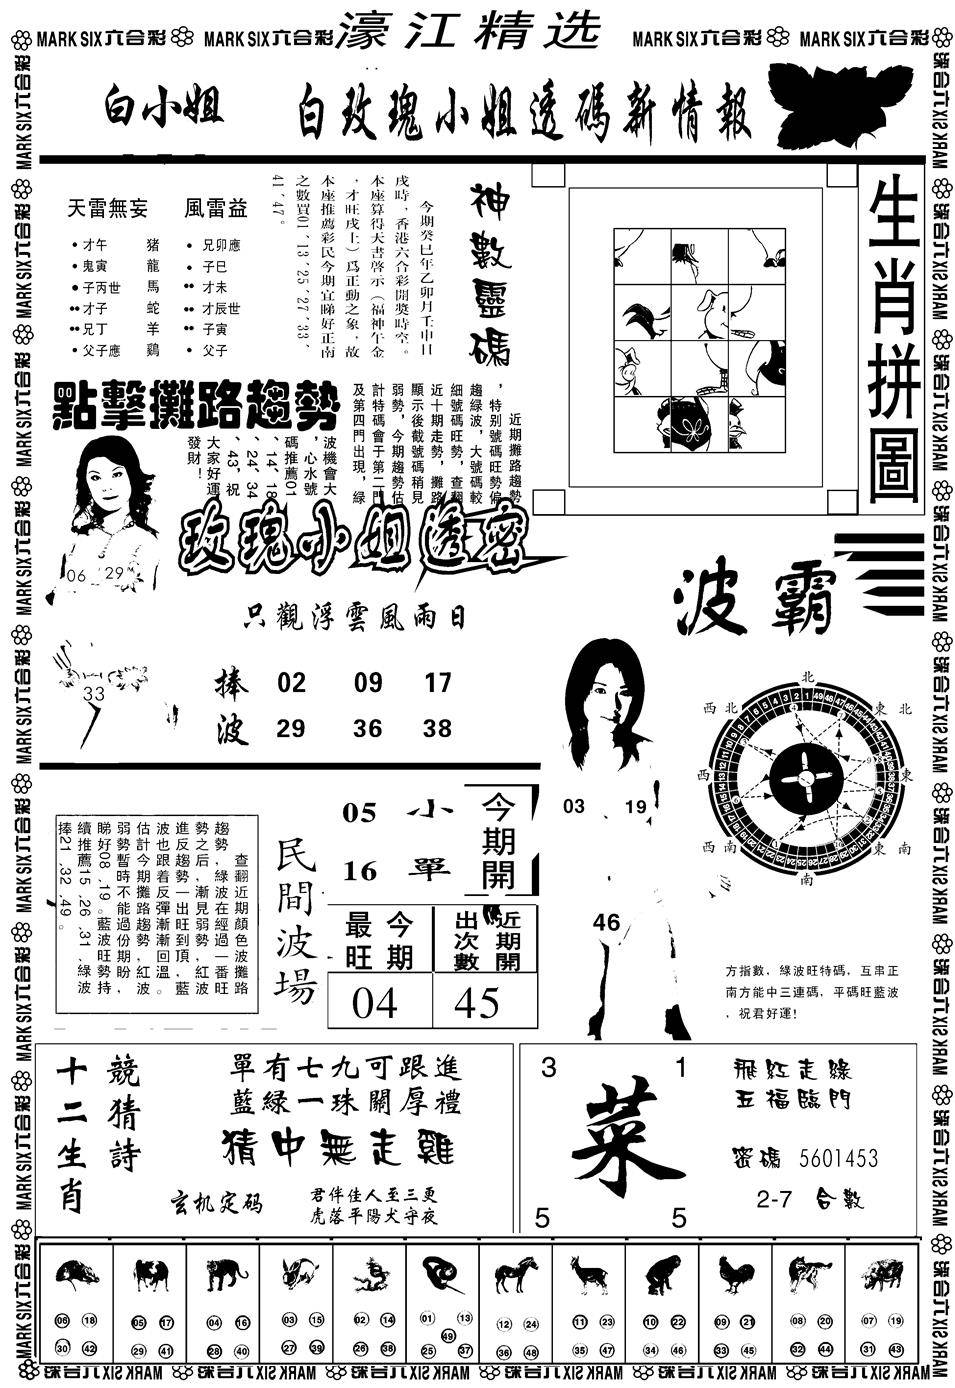 MARK SIX六合彩 MARK SIX六合彩 濠江精选 MARK SIX六合彩 MARK SIX六合彩
白小姐 白玫瑰小姐透碼新情報
天雷無妄 風雷益
•才午 豬 •兄卯應
•鬼寅 龍 •子巳
•子丙世 馬 ••才未
••才子 蛇 ••才辰世
••兄丁 羊 ••子寅
•父子應 鷄 •父子
神數靈碼
今期癸巳年乙卯月壬申日
戌時，香港六合彩開獎時空。
本座算得天書啓示（福神午金
，才旺戌土）爲正動之象，故
本座推薦彩民今期宜睇好正南
之數買01、13、25、27、33、
41、47。
生肖拼圖
點擊攤路趨勢
近期攤路趨勢
，特别號碼旺勢偏
趨綠波，大號碼較
細號碼旺勢，查翻
近十期走勢，攤路
顯示後截號碼稍見
弱勢，今期趨勢估
計特碼會于第二門
及第四門出現，綠
波機會大
，心水號
碼推薦01
、14、18
、24、34
、43，祝
大家好運
發財！
06 29
33
玫瑰小姐透密
只觀浮雲風雨日
捧 02 09 17
波 29 36 38
波霸
北
西北 東北
西 東
西南 東南
南
03 19
46
方指數，綠波旺特碼，互串正
南方能中三連碼，平碼旺藍波
，祝君好運！
查翻近期顏色波攤路
趨勢，綠波在經過一番旺
勢之后，漸見弱勢，紅波
進反趨勢一出旺到頂，藍
波也跟着反彈漸漸回溫。
估計今期攤路趨勢，紅波
弱勢暫時不能過份期盼，
睇好08、19。藍波旺勢持
續推薦15、26、31、綠波
捧21、32、49。
民間波場
05 小
16 單
今期開
今期最旺
近期開出次數
04 45
十二生肖
競猜詩
單有七九可跟進
藍綠一珠關厚禮
猜中無走雞
玄机定码
君伴佳人至三更
虎落平陽犬守夜
3 1
菜
5 5
飛紅走綠
五福臨門
密碼 5601453
2-7 合數
06 18 05 17 04 16 03 15 02 14 01 13 12 24 11 23 10 22 09 21 08 20 07 19
49
30 42 29 41 28 40 27 39 26 38 25 37 36 48 35 47 34 46 33 45 32 44 31 43